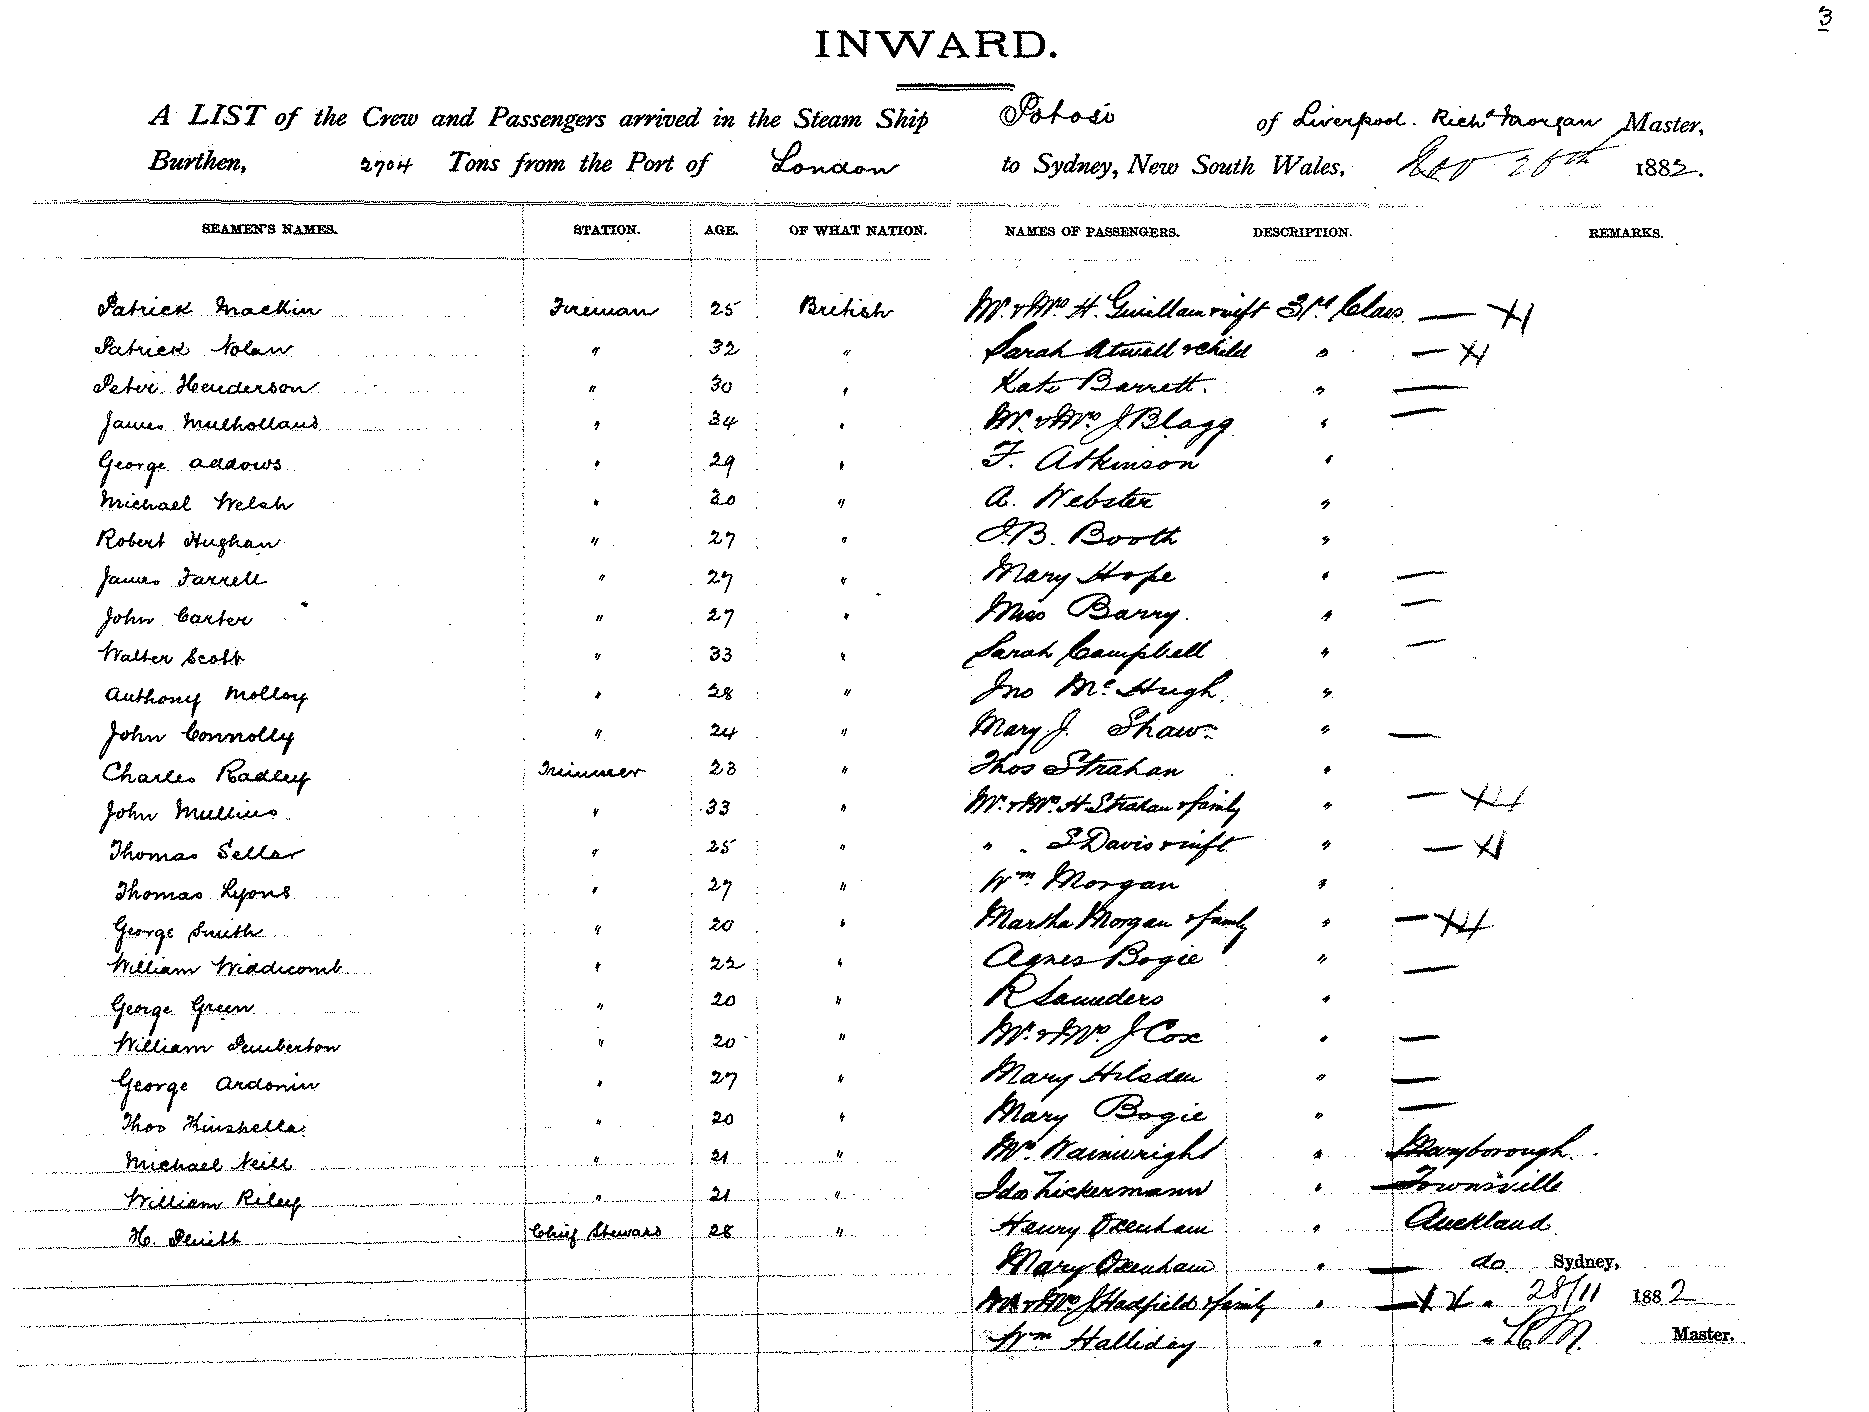 3
INWARD.
A LIST of the Crew and Passengers arrived in the Steam Ship Potosi of Liverpool. Richd Morgan Master,
Burthen, 2704 Tons from the Port of London to Sydney, New South Wales, Nov 28th 1882.
SEAMEN'S NAMES. STATION. AGE. OF WHAT NATION. NAMES OF PASSENGERS. DESCRIPTION. REMARKS.
Patrick Mackin Fireman 25 British Mr. & Mrs H. Gwillam & inft 3rd Class —
Patrick Nolan " 32 " Sarah Atwell & child " —
Peter Henderson " 30 " Kate Barrett. " —
James Mulholland " 34 " Mr. & Mrs. J. Blagg " —
George Addows " 29 " F. Atkinson "
Michael Welsh " 30 " A. Webster "
Robert Hughan " 27 " J.B. Booth "
James Farrell " 27 " Mary Hope " —
John Carter " 27 " Miss Barry. " —
Walter Scott " 33 " Sarah Campbell " —
Anthony Molloy " 28 " Jno McHugh. "
John Connolly " 24 " Mary J. Shaw " —
Charles Radley Trimmer 23 " Thos Strahan "
John Mullins " 33 " Mr. & Mrs. H. Strahan & family " —
Thomas Sellar " 25 " " " S Davis & inft " —
Thomas Lyons " 27 " Wm Morgan "
George Smith " 20 " Martha Morgan & family " —
William Widdicomb " 22 " Agnes Bogie " —
George Green " 20 " R Saunders "
William Pemberton " 20 " Mr. & Mrs J Cox " —
George Ardonin " 27 " Mary Hilsden " —
Thos Kinshella " 20 " Mary Bogie " —
Michael Neill " 21 " Mrs Wainwright " Maryborough.
William Riley " 21 " Ida Zickermann " — Townsville
H. Chief Steward 28 " Henry Oxenham " Auckland
Mary Oxenham " — do Sydney,
Mr & Mrs J Hadfield & family " — " 28/11 1882
Wm Halliday " " R M. Master.